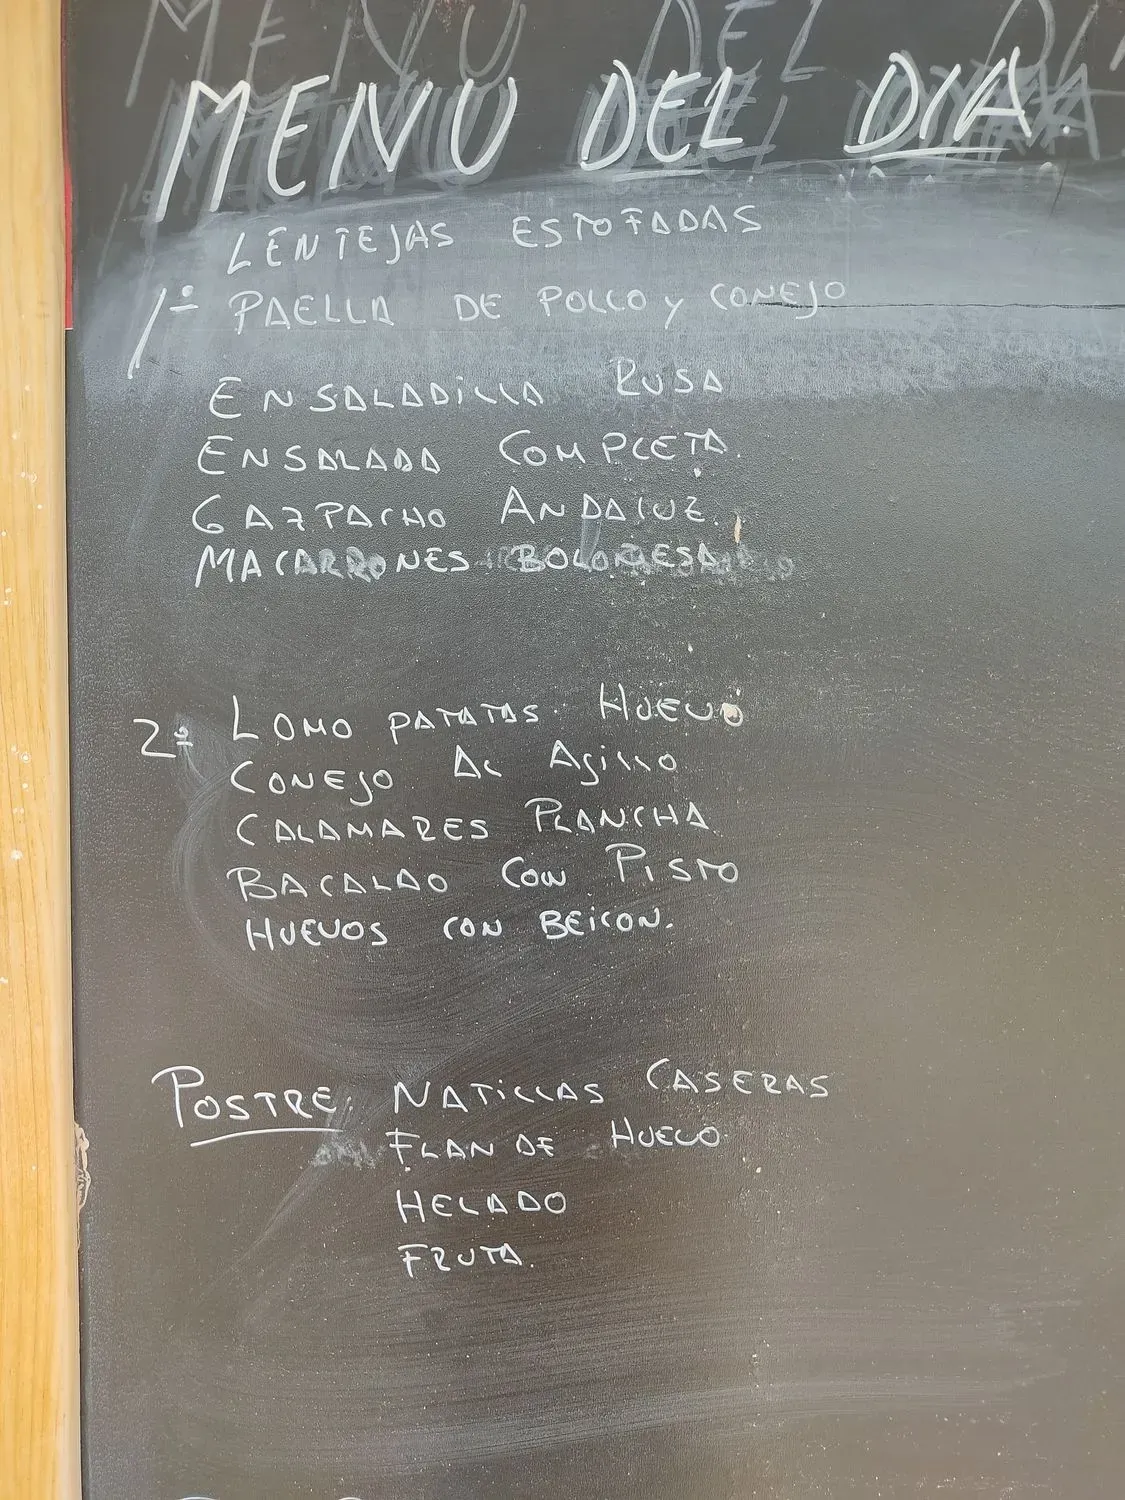 MENU DEL DIA.
LENTEJAS ESTOFADAS
1º PAELLA DE POLLO y CONEJO
ENSALADILLA RUSA
ENSALADA COMPLETA.
GAZPACHO ANDALUZ.
MACARRONES BOLOÑESA
2º LOMO PATATAS HUEVO
CONEJO AL AJILLO
CALAMARES PLANCHA
BACALAO CON PISTO
HUEVOS CON BEICON.
POSTRE: NATILLAS CASERAS
FLAN DE HUEVO
HELADO
FRUTA.